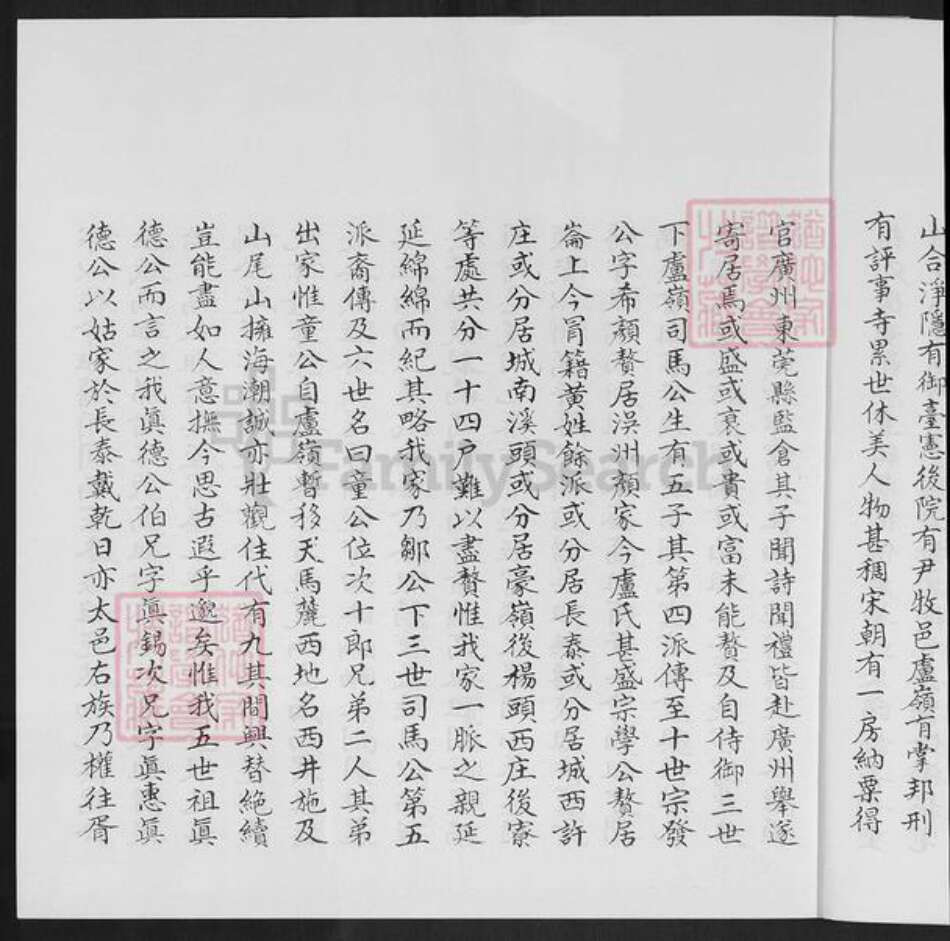 山合淨隱有御臺憲後院有尹牧邑盧嶺有掌邦刑
有評事寺累世休美人物甚稠宋朝有一房納粟得
官廣州東莞縣監倉其子聞詩聞禮皆赴廣州舉遂
寄居焉或盛或衰或貴或富未能贅及自侍御三世
下盧嶺司馬公生有五子其第四派傳至十世宗發
公字希顏贅居浯州顏家今盧氏甚盛宗學公贅居
崙上今冐籍黃姓餘派或分居長泰或分居城西許
庄或分居城南溪頭或分居豪嶺後楊頭西庄後寮
等處共分一十四戶難以盡贅惟我家一脈之親延
延綿綿而紀其略我家乃鄒公下三世司馬公第五
派裔傳及六世名曰童公位次十郎兄弟二人其弟
出家惟童公自盧嶺暫移天馬麓西地名西井施及
山尾山擁海潮誠亦壯觀住代有九其間興替絶續
豈能盡如人意撫今思古遐乎邈矣惟我五世祖眞
德公而言之我眞德公伯兄字眞錫次兄字眞惠眞
德公以姑家於長泰戴乾日亦太邑右族乃權往胥
FamilySearch